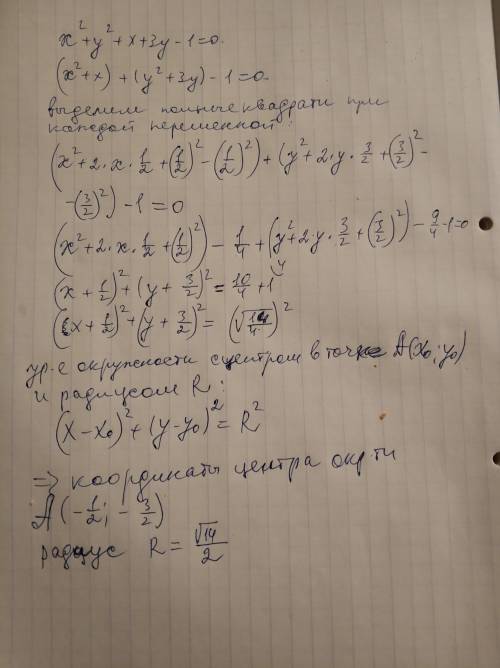 x² + y² + x + 3y - 1 = 0.
(x² + x) + (y² + 3y) - 1 = 0.
выделим полные квадраты при
каждой переменной:
(x² + 2·x·1/2 + (1/2)² - (1/2)²) + (y² + 2·y·3/2 + (3/2)² -
- (3/2)²) - 1 = 0
(x² + 2·x·1/2 + (1/2)²) - 1/4 + (y² + 2·y·3/2 + (3/2)²) - 9/4 - 1 = 0
(x + 1/2)² + (y + 3/2)² = 10/4 + 1
(x + 1/2)² + (y + 3/2)² = (√14/4)²
ур-е окружности с центром в точке A(x₀; y₀)
и радиусом R:
(x - x₀)² + (y - y₀)² = R²
⇒ координаты центра окр-ти
A(-1/2; -3/2)
радиус R = √14/2